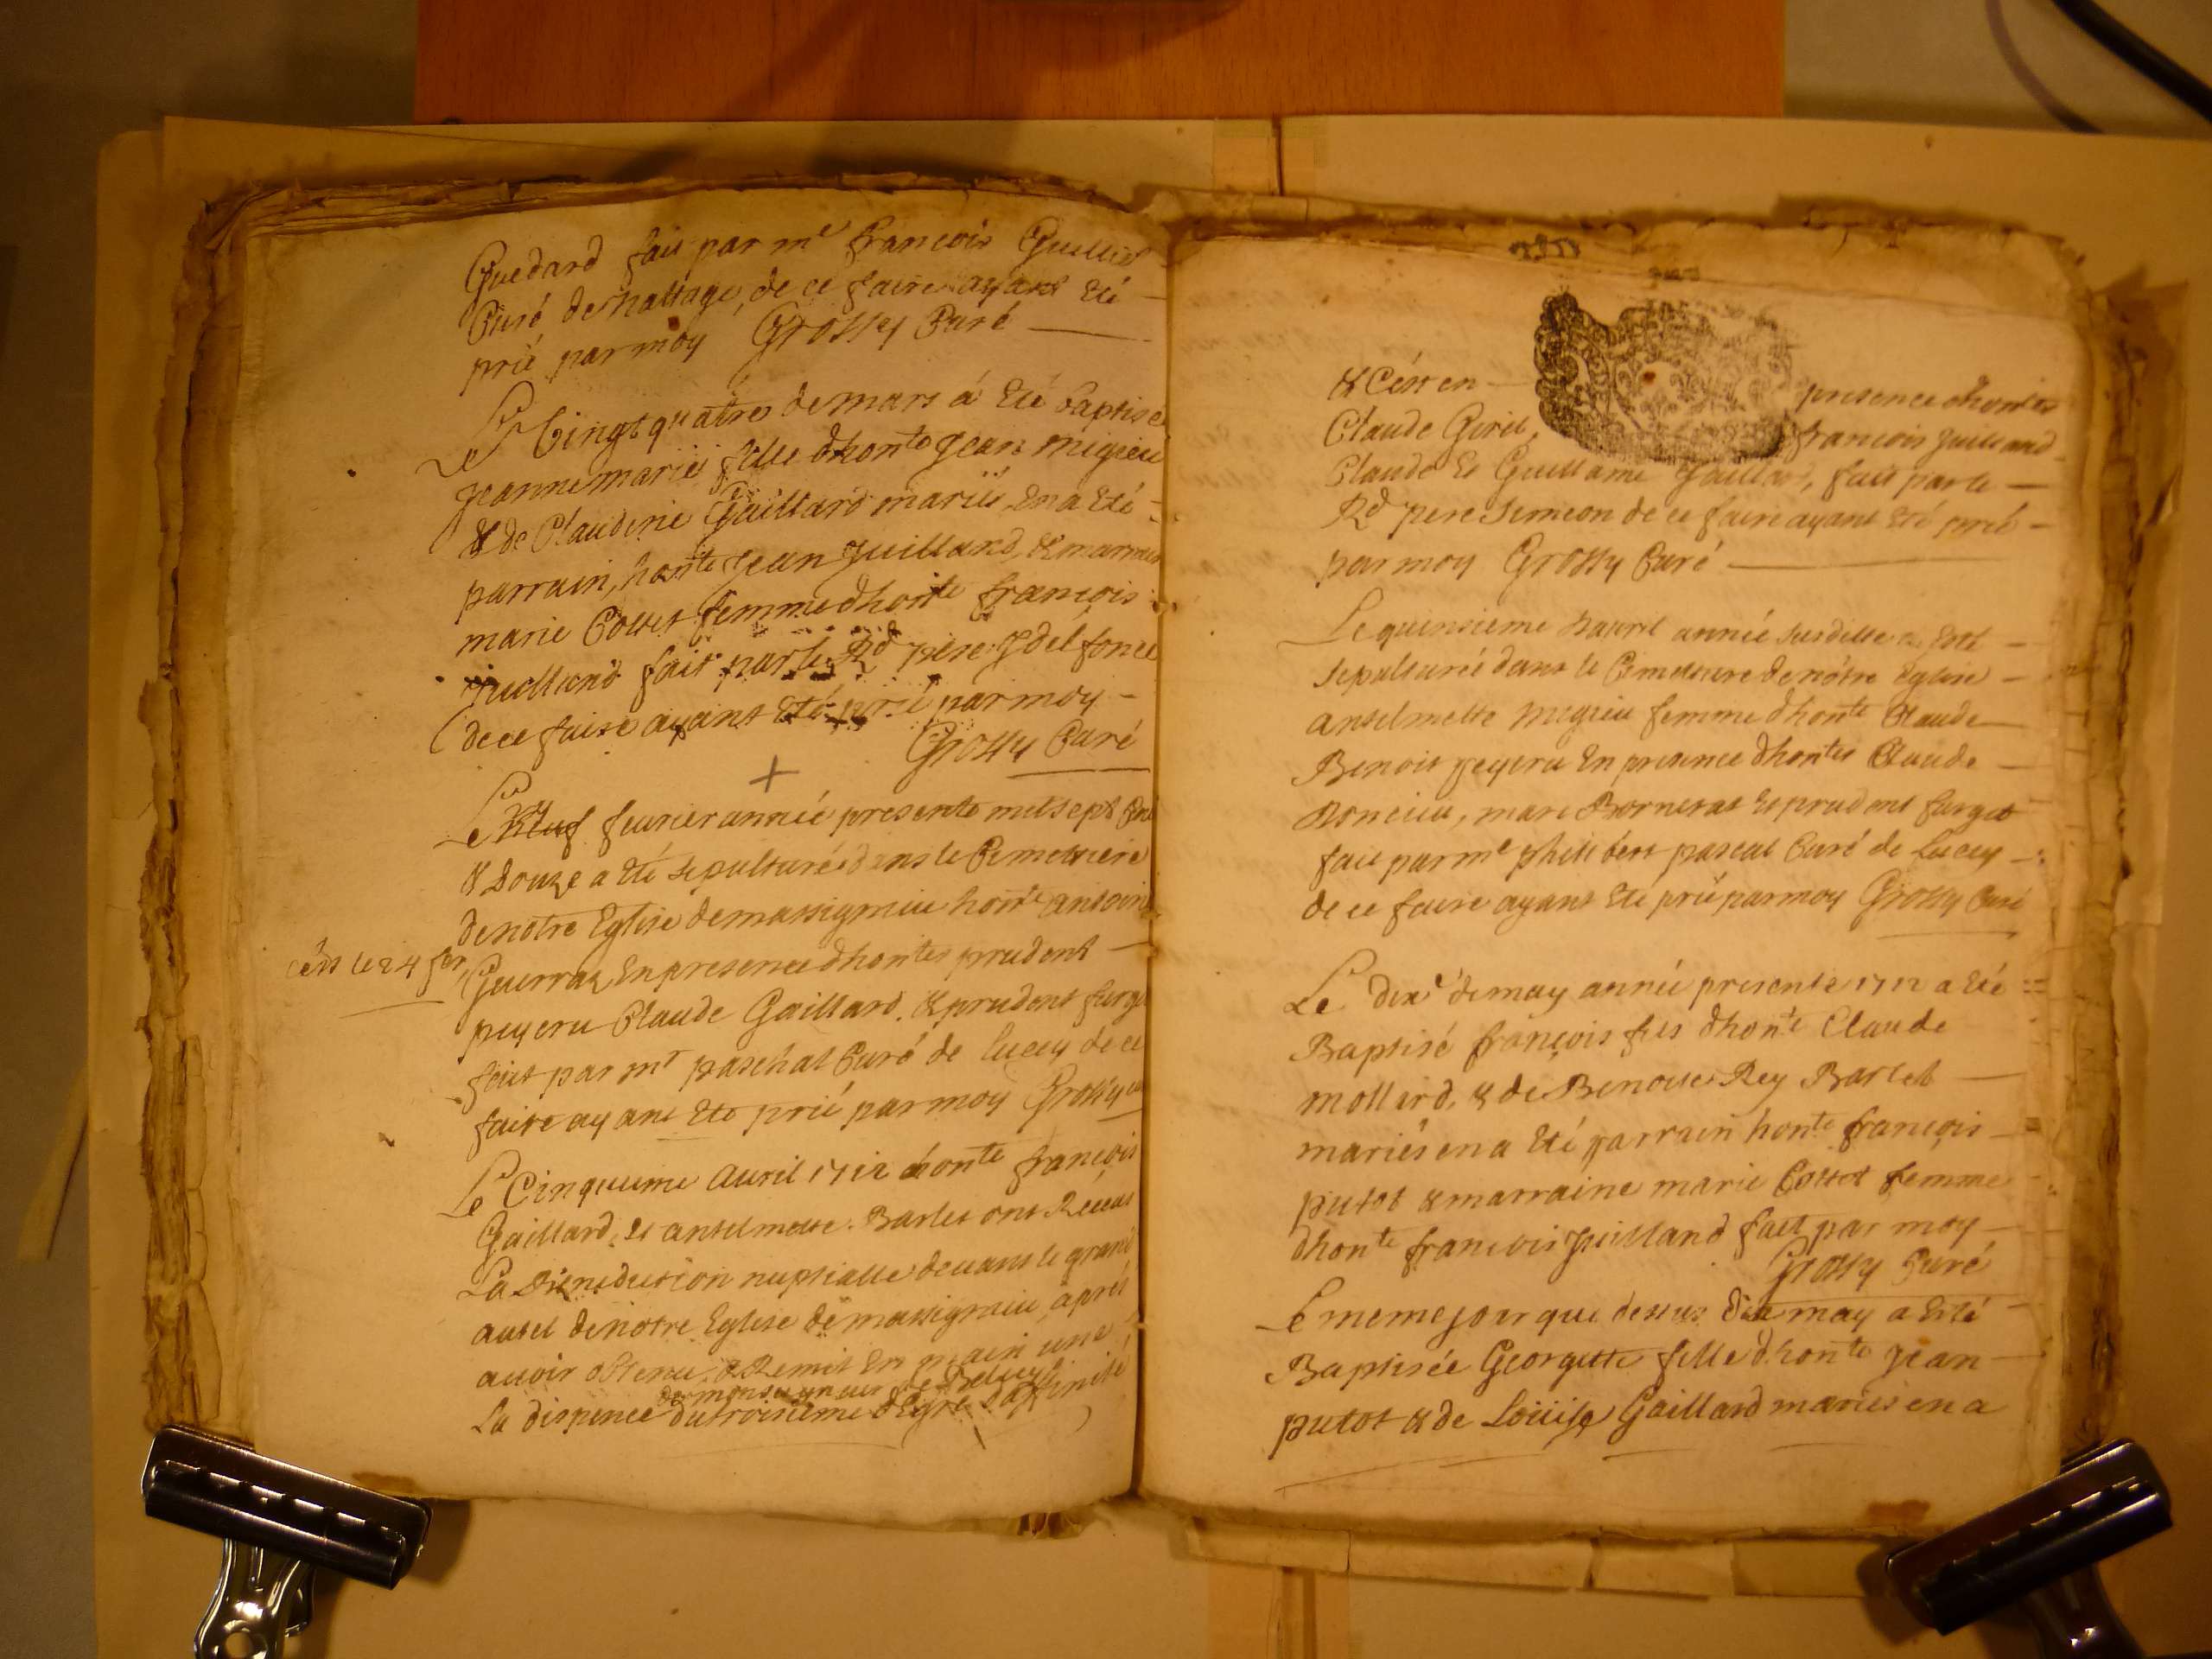 Guedard fait par mr françois Guilliet
Curé de nattage, de ce faire ayant Eté
prié par moy Grossy Curé
Le Vingt quatre de mars á Eté baptisé
Jeanne marie fille dhonte Jean migieu
& de Claudine Gaillard mariés En a Eté
parrain, honte Jean Juilland, & marraine
marie Cottet femme dhonte françois
juilland fait par le Rd pere Jdelfonce
de ce faire ayant Eté prié par moy
Grossy Curé
Le Neuf feurier année presente mil sept Cent
& Douze a Eté sepulturé dans le Cemettiere
de notre Eglise de massignieu honte antoine
cést le 24 fer
Guerraz En presence dhontes prudent
peyeru Claude Gaillard, & prudent furget
fait par mr paschal Curé de lucey de ce
faire ayant Eté prié par moy Grossy
Le Cinquieme Auril 1712 honte françois
Gaillard, Et antelmette Barlet ont Receus
La Benediction nuptialle deuant le grand
autel de notre Eglise de massignieu, aprés
auoir obtenu & Remis En main une
de monseigneur de Belley
La dispence du troisieme dEgré d'affinité
& Cést en presence dhontes
Claude Giril, françois juilland
Claude Et Guillame Gaillard, fait par le
Rd pere Simeon de ce faire ayant Eté prié
par moy Grossy Curé
Le quinsieme dauril année susditte a Esté
sepulturée dans le Cimettiere de nótre Eglise
antelmette migieu femme dhonte Claude
Benoit peyeru En presence dhontes Claude
Roncieu, marc Bornerat Et prudent furget
fait par mr philibert pascal Curé de Lucey
de ce faire ayant Eté prié par moy Grossy Curé
Le dixe de may année presente 1712 a Eté
Baptisé françois fils dhonte Claude
mollard, & de Benoite Rey Barlet
mariés en a Eté parrain honte françois
putot & marraine marie Cottet femme
dhonte françois juilland fait par moy
Grossy Curé
Le meme jour que dessus Dix may a Esté
Baptisée Georgette fille dhonte jean
putot & de Loüise Gaillard mariés en a